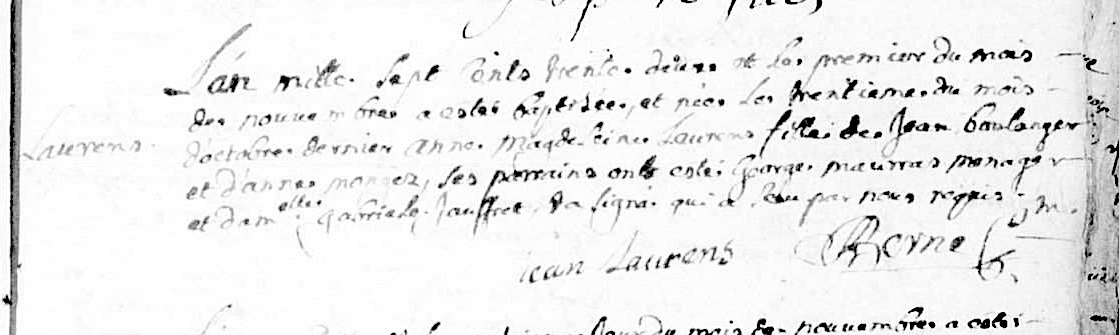 Laurens
L'an mille sept cents trente deux et le premier du mois
de nouvembre a esté baptisée, et née le trentieme du mois
d'octobre dernier anne magdeleine Laurens fille de Jean boulanger
et d'anne monges, ses parrains onts esté George maurras menager
et dam.elle gabriele Jauffret, a signé qui a sceu par nous requis
jean Laurens
mois de nouvembre a esté